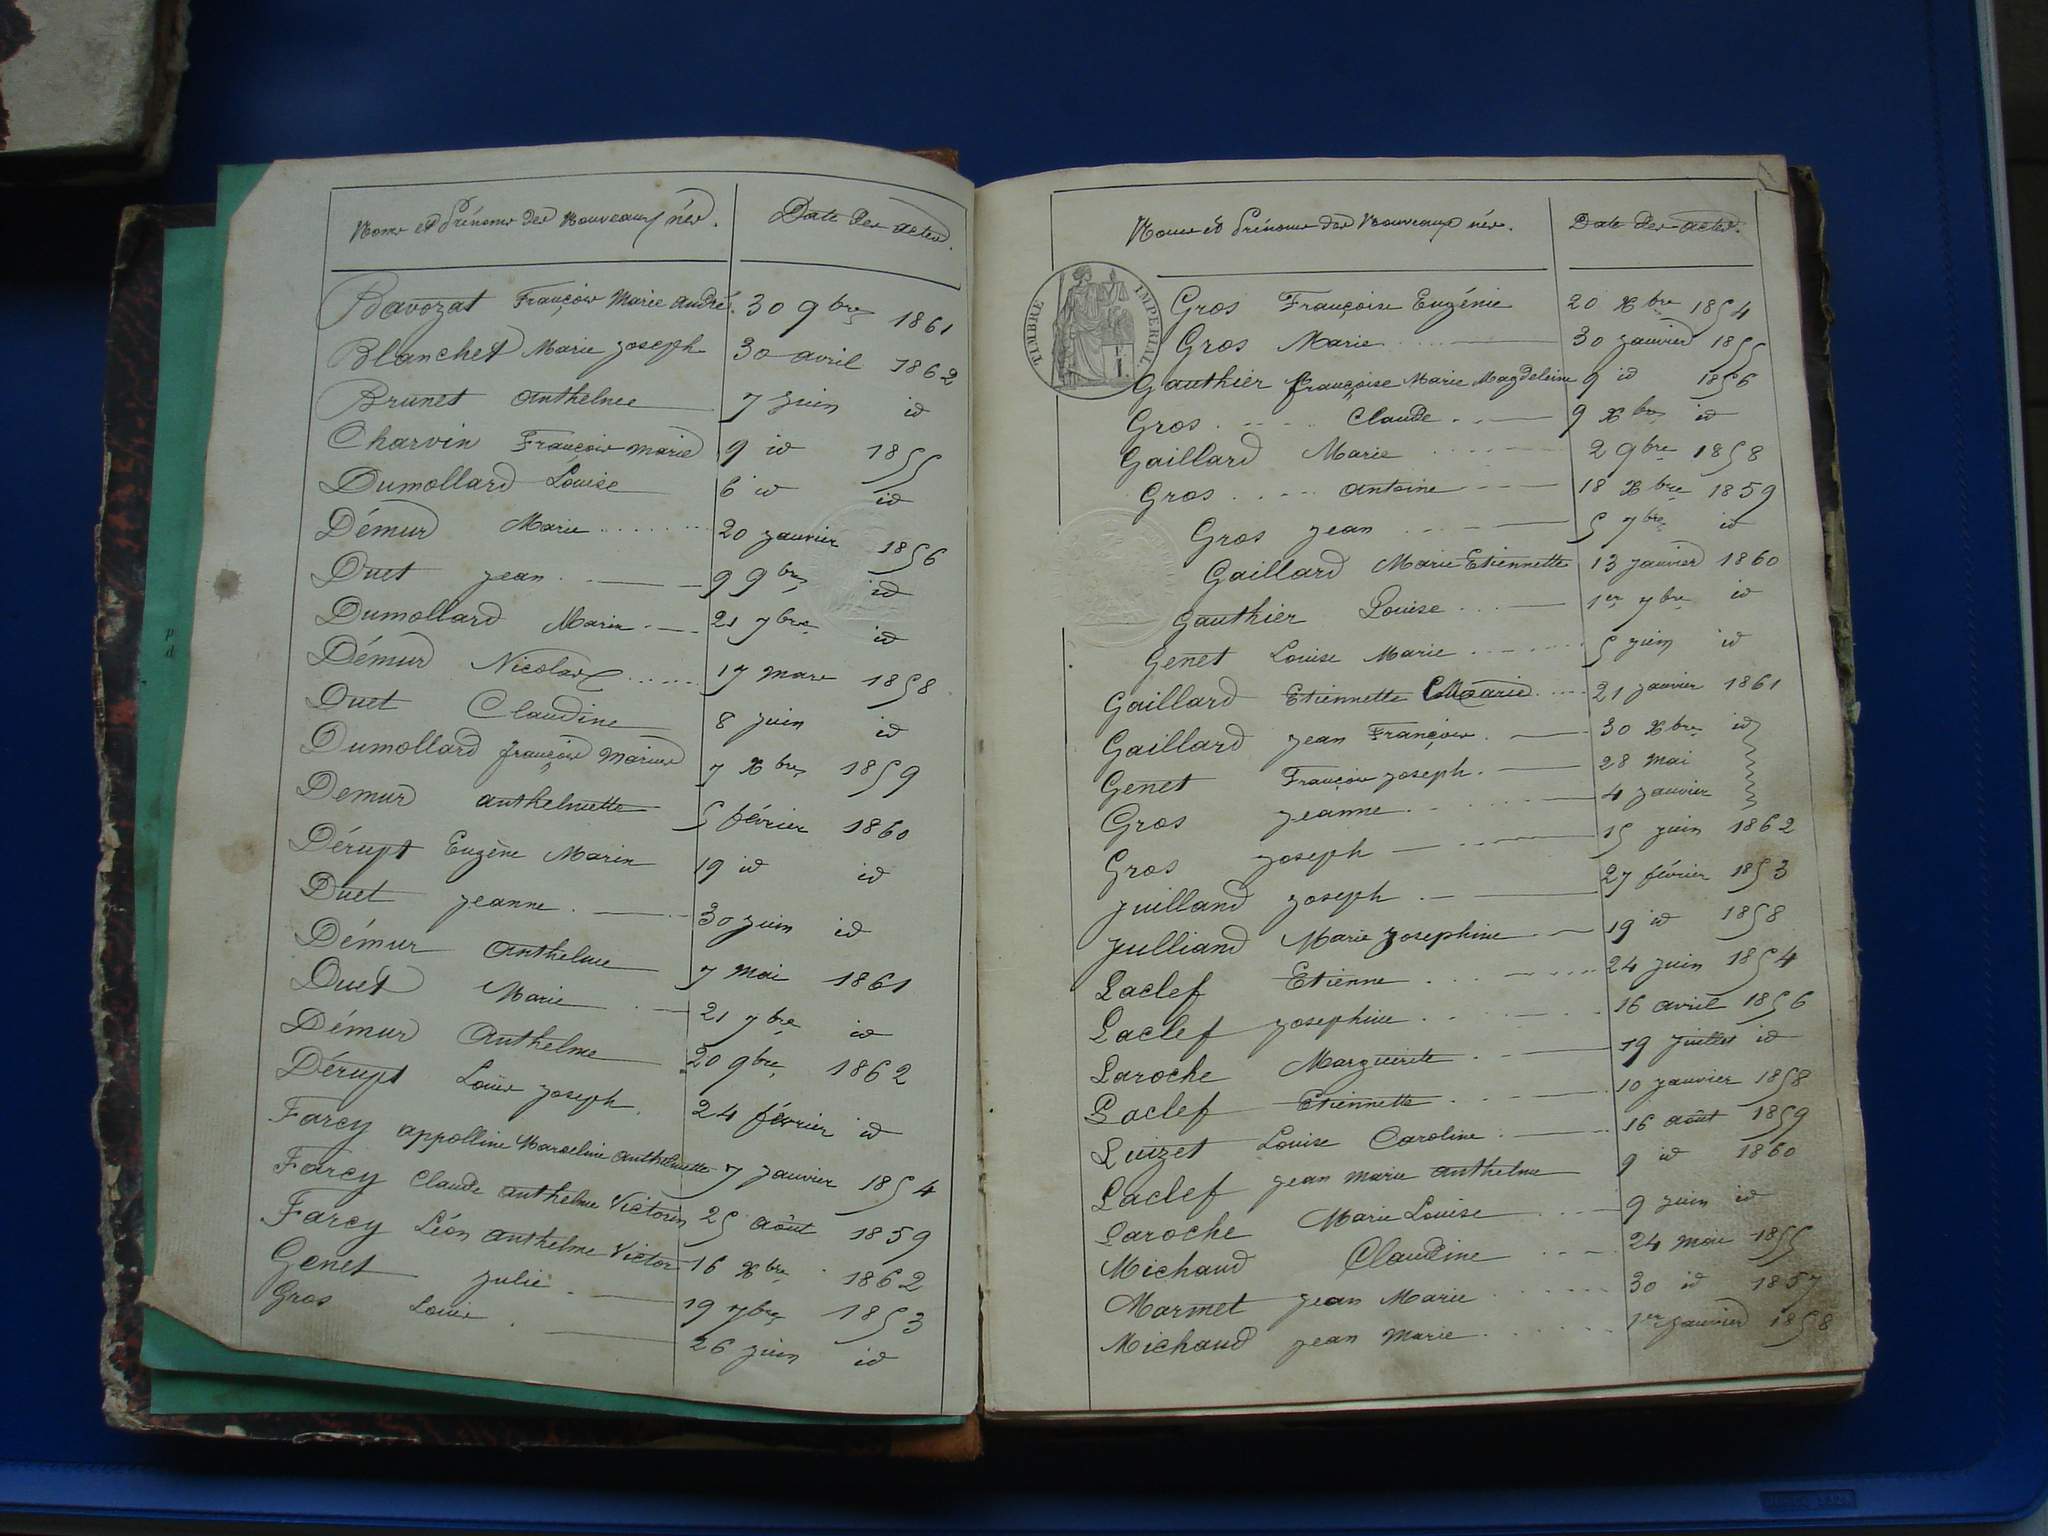 Noms et Prénoms des Nouveaux nés. Date des actes.
Bavozat François Marie André. 30 9bre 1861
Blanchet Marie Joseph 30 avril 1862
Brunet Anthelme 7 Juin id
Charvin François Marie 9 id 1855
Dumollard Louise 6 id id
Démur Marie 20 Janvier 1856
Duet Jean 9 9bre id
Dumollard Marie 21 7bre id
Démur Nicolas 17 Mars 1858
Duet Claudine 8 Juin id
Dumollard françois Marius 7 Xbre 1859
Demur anthelmette 5 février 1860
Dérupt Eugène Marie 19 id id
Duet Jeanne 30 Juin id
Démur Anthelme 7 Mai 1861
Duet Marie 21 7bre id
Démur Anthelme 20 9bre 1862
Dérupt Louis Joseph 24 février id
Farcy appolline Marceline anthelmette 7 Janvier 1854
Farcy Claude anthelme Victorin 25 août 1859
Farcy Léon anthelme Victor 16 Xbre 1862
Genet Julie 19 7bre 1853
Gros Louis 26 Juin id
Noms et Prénoms des Nouveaux nés. Date des actes.
TIMBRE IMPERIAL
Gros Françoise Eugénie 20 Xbre 1854
Gros Marie 30 Janvier 1855
Gauthier françoise Marie Magdeleine 9 id 1856
Gros Claude 9 Xbre id
Gaillard Marie 2 9bre 1858
Gros Antoine 18 Xbre 1859
Gros Jean 5 7bre id
Gaillard Marie Etiennette 13 Janvier 1860
Gauthier Louise 1er 7bre id
Genet Louise Marie 5 Juin id
Gaillard Etiennette Marie 21 Janvier 1861
Gaillard Jean François 30 Xbre id
Genet François Joseph 28 Mai
Gros Jeanne 4 Janvier
Gros Joseph 15 Juin 1862
Juilland Joseph 27 février 1853
Julliand Marie Josephine 19 id 1858
Laclef Etienne 24 Juin 1854
Laclef Josephine 16 avril 1856
Laroche Marguerite 19 Juillet id
Laclef Etiennette 10 Janvier 1858
Luizet Louise Caroline 16 août 1859
Laclef Jean Marie anthelme 9 id 1860
Laroche Marie Louise 9 Juin id
Michaud Claudine 24 Mai 1855
Marmet Jean Marie 30 id 1857
Michaud Jean Marie 1er Janvier 1858